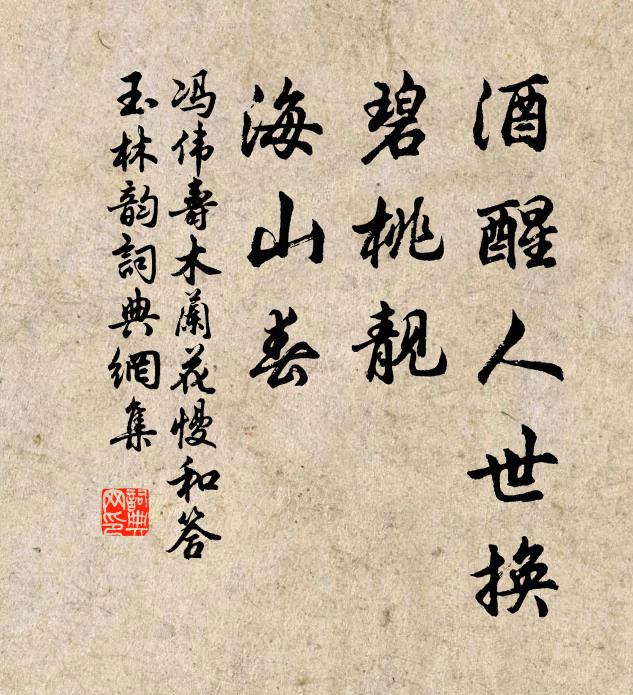 酒醒人世换
碧桃靓
海山春
冯伟寿木蘭花慢和答
玉林韵詞典網集
詞典网印